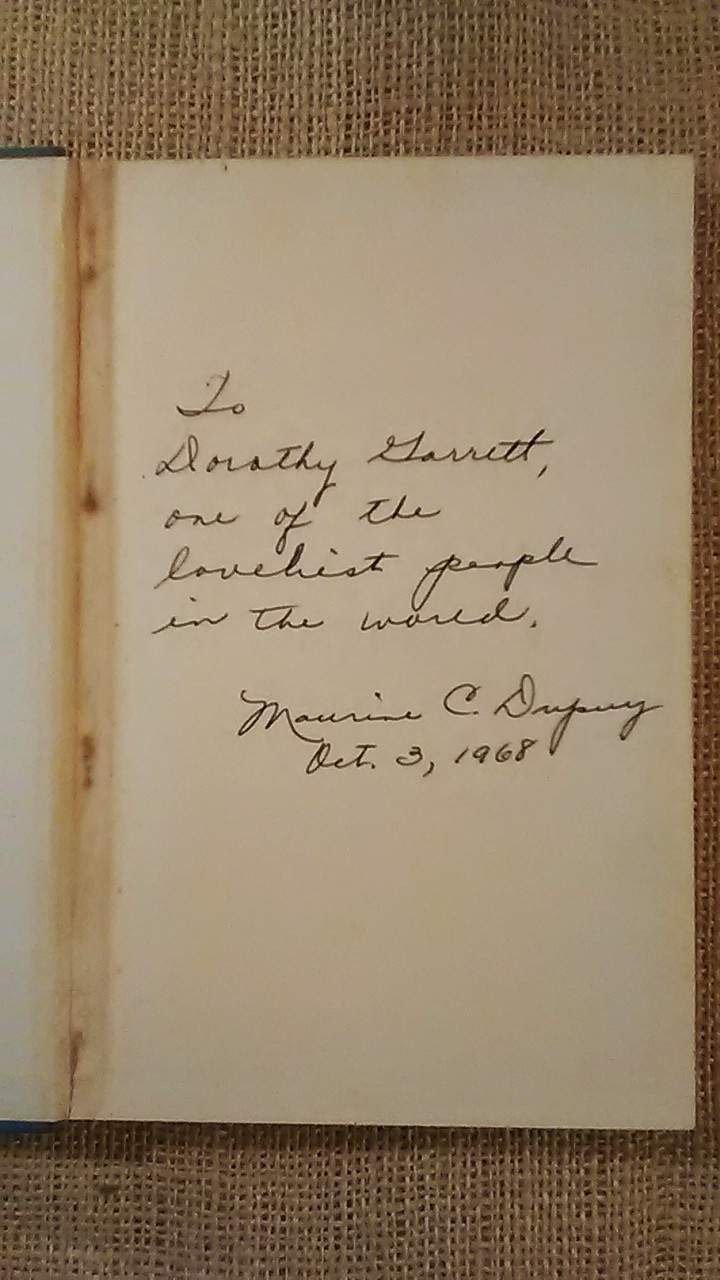 To
Dorothy Garrett,
one of the
loveliest people
in the world.
Maurine C. Dupuy
Oct. 3, 1968